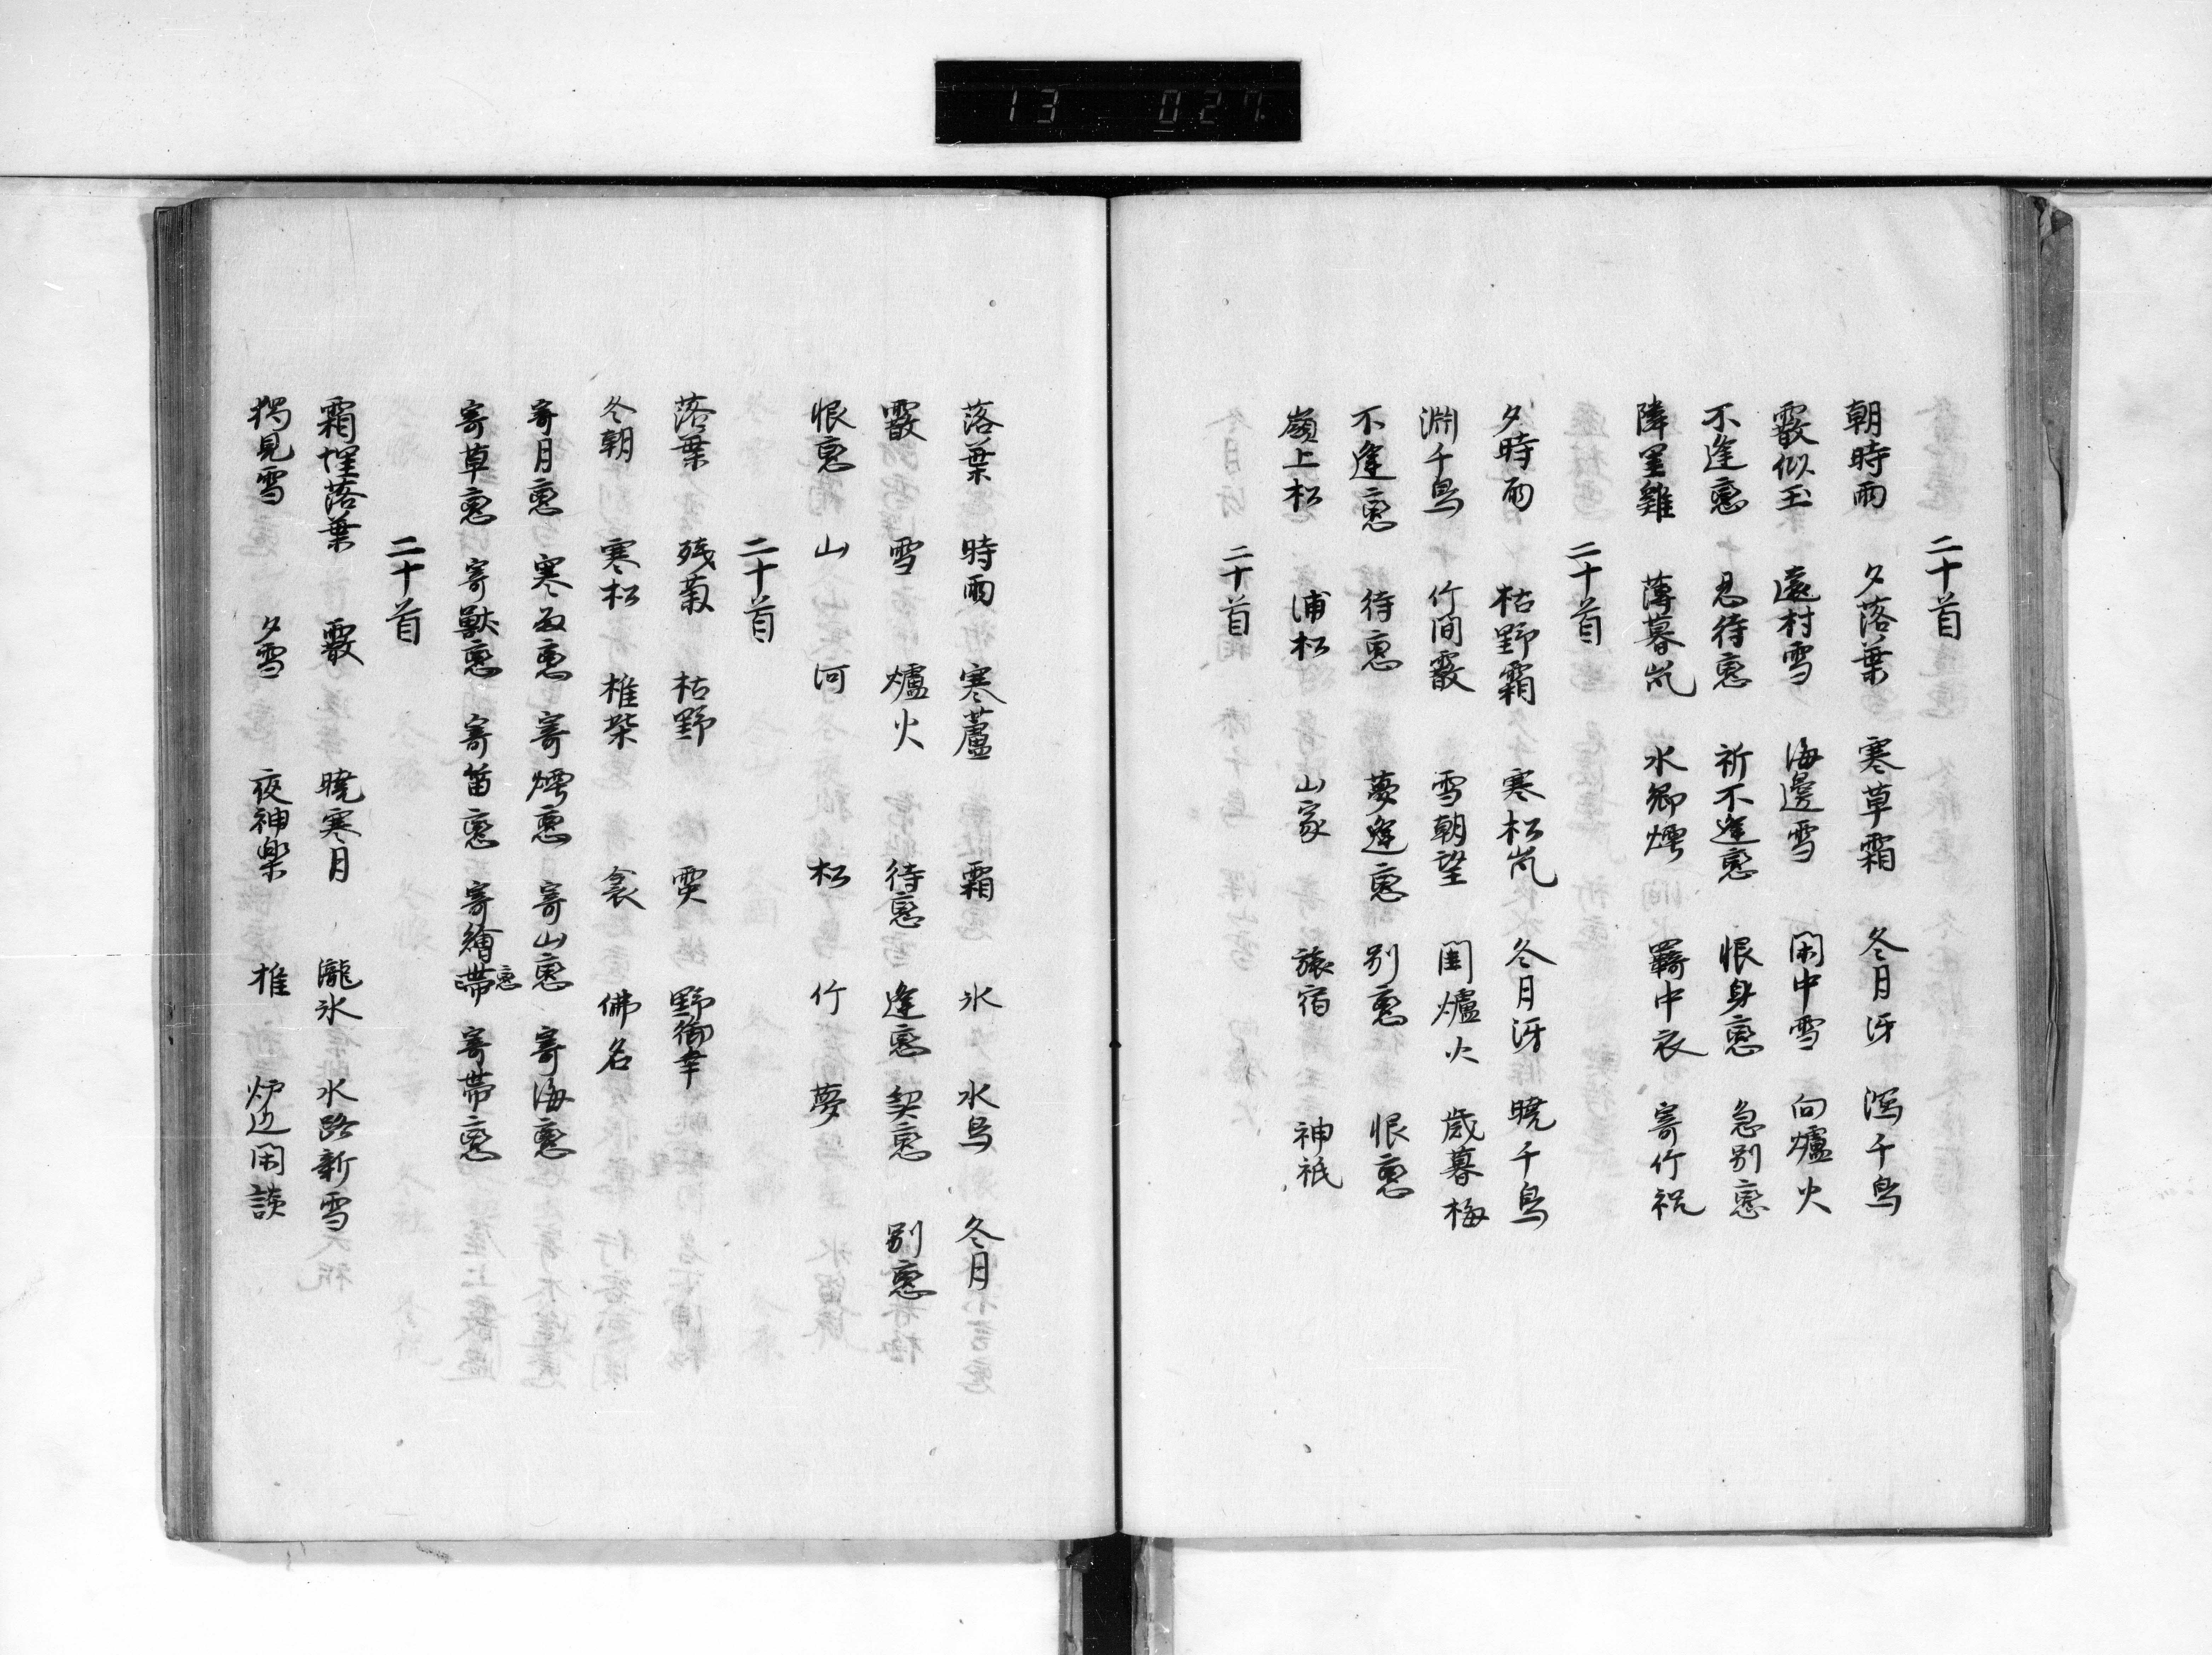 13 027
二十首
朝時雨 夕落葉 寒草霜 冬月冴 瀉千鳥
霰似玉 遠村雪 海邊雪 閑中雪 向爐火
不逢戀 忍待戀 祈不逢戀 恨身戀 急別戀
隣里雞 薄暮嵐 水郷煙 羇中衣 寄竹祝
二十首
夕時雨 枯野霜 寒松嵐 冬月冴 暁千鳥
渕千鳥 竹間霰 雪朝望 閨爐火 歳暮梅
不逢戀 待戀 夢逢戀 別戀 恨戀
嶺上松 浦松 山家 旅宿 神祇
二十首
落葉 時雨 寒蘆 霜 氷 水鳥 冬月
霰 雪 爐火 待戀 逢戀 契戀 別戀
恨戀 山 河 松 竹 夢
二十首
落葉 残菊 枯野 霙 野御幸
冬朝 寒松 椎柴 衾 佛名
寄月戀 寒衣戀 寄煙戀 寄山戀 寄海戀
寄草戀 寄獣戀 寄笛戀 寄繪戀 寄帯戀
二十首
霜埋落葉 霰 曉寒月 瀧氷 水路新雪
獨見雪 夕雪 夜神楽 椎 炉辺閑談